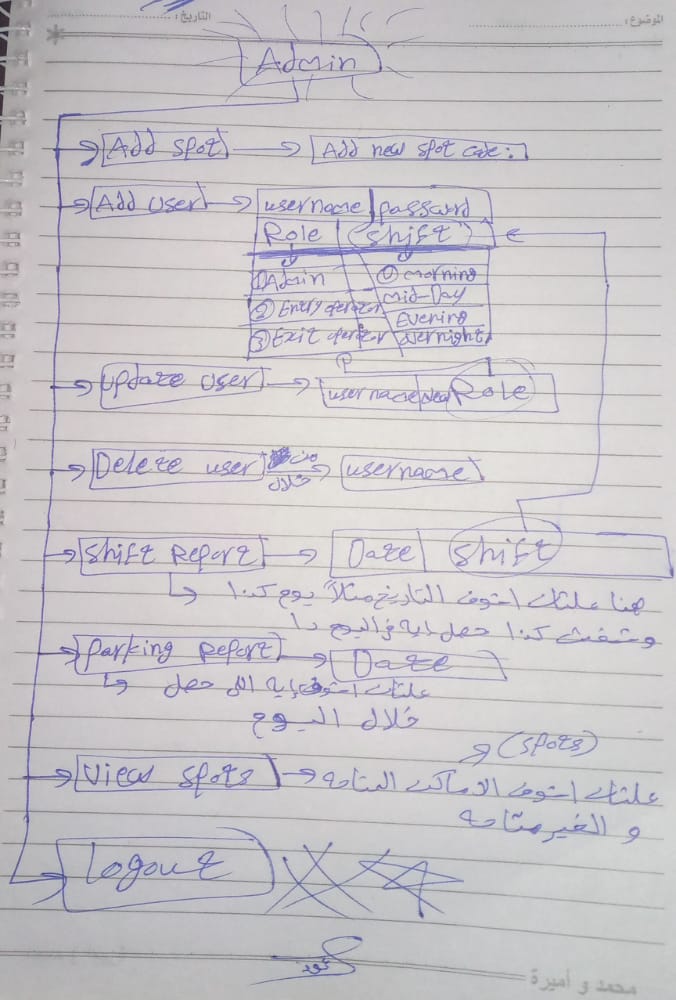 الموضوع: التاريخ:
Admin
Add spot Add new spot code:
Add user username password
Role (shift)
① Admin ① morning
② Entry operator mid-Day
③ Exit operator Evening
overnight
update user username new Role
Delete user من خلال username
Shift Report Date Shift
هنا علشان اشوف التاريخ مثلاً يوم كذا
وشفت كذا حصل ايه في اليوم دا
parking Report Date
علشان اشوف ايه اللي حصل
خلال اليوم
(spots)
View spots علشان اشوف الاماكن المتاحه
و الغير متاحه
Logout
محمد و أميرة